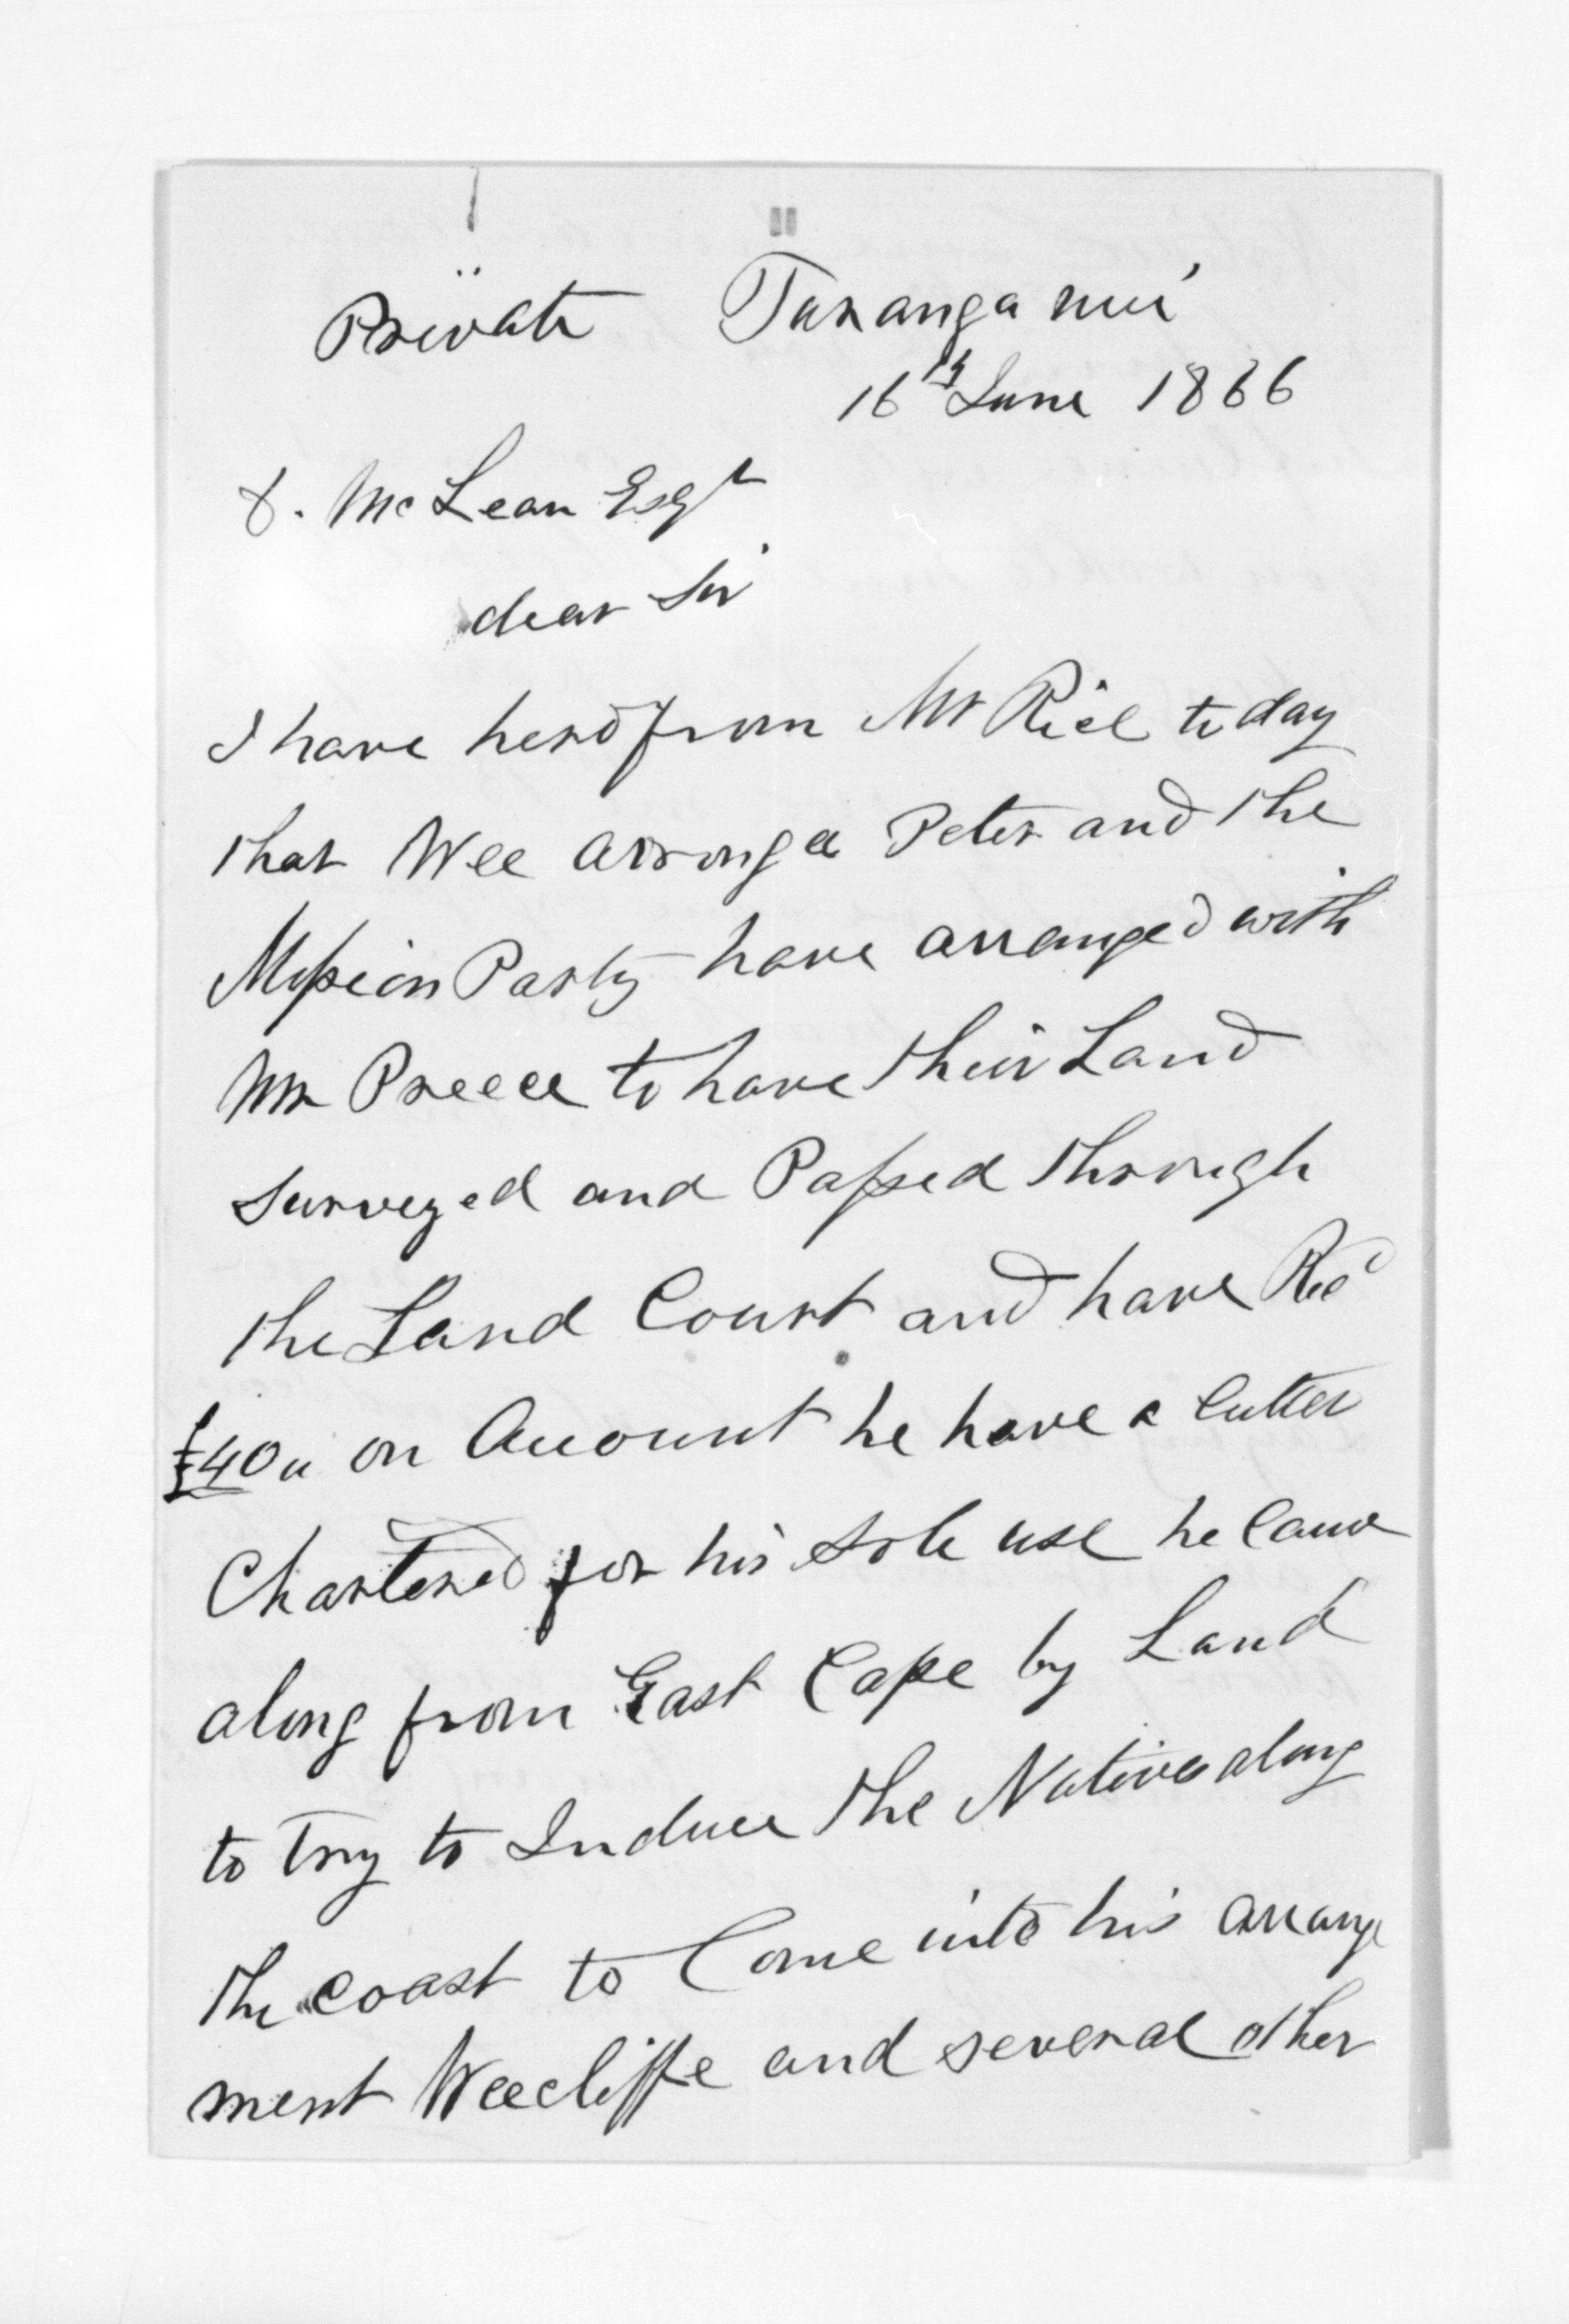 Private Turanga nui
16th June 1866
D. McLean Esqr
dear Sir
I have herd from Mr Rice to day
that Wee arronga Peter and the
Mission Party have arranged with
Mr Preece to have their Land
surveyed and Passed through
the Land Court and have Recd
£40 on Account he have a Cutter
Chartered for his sole use he Came
along from East Cape by Land
to Try to Induce the Natives along
the coast to Come into his arrange
ment Weecliffe and several other